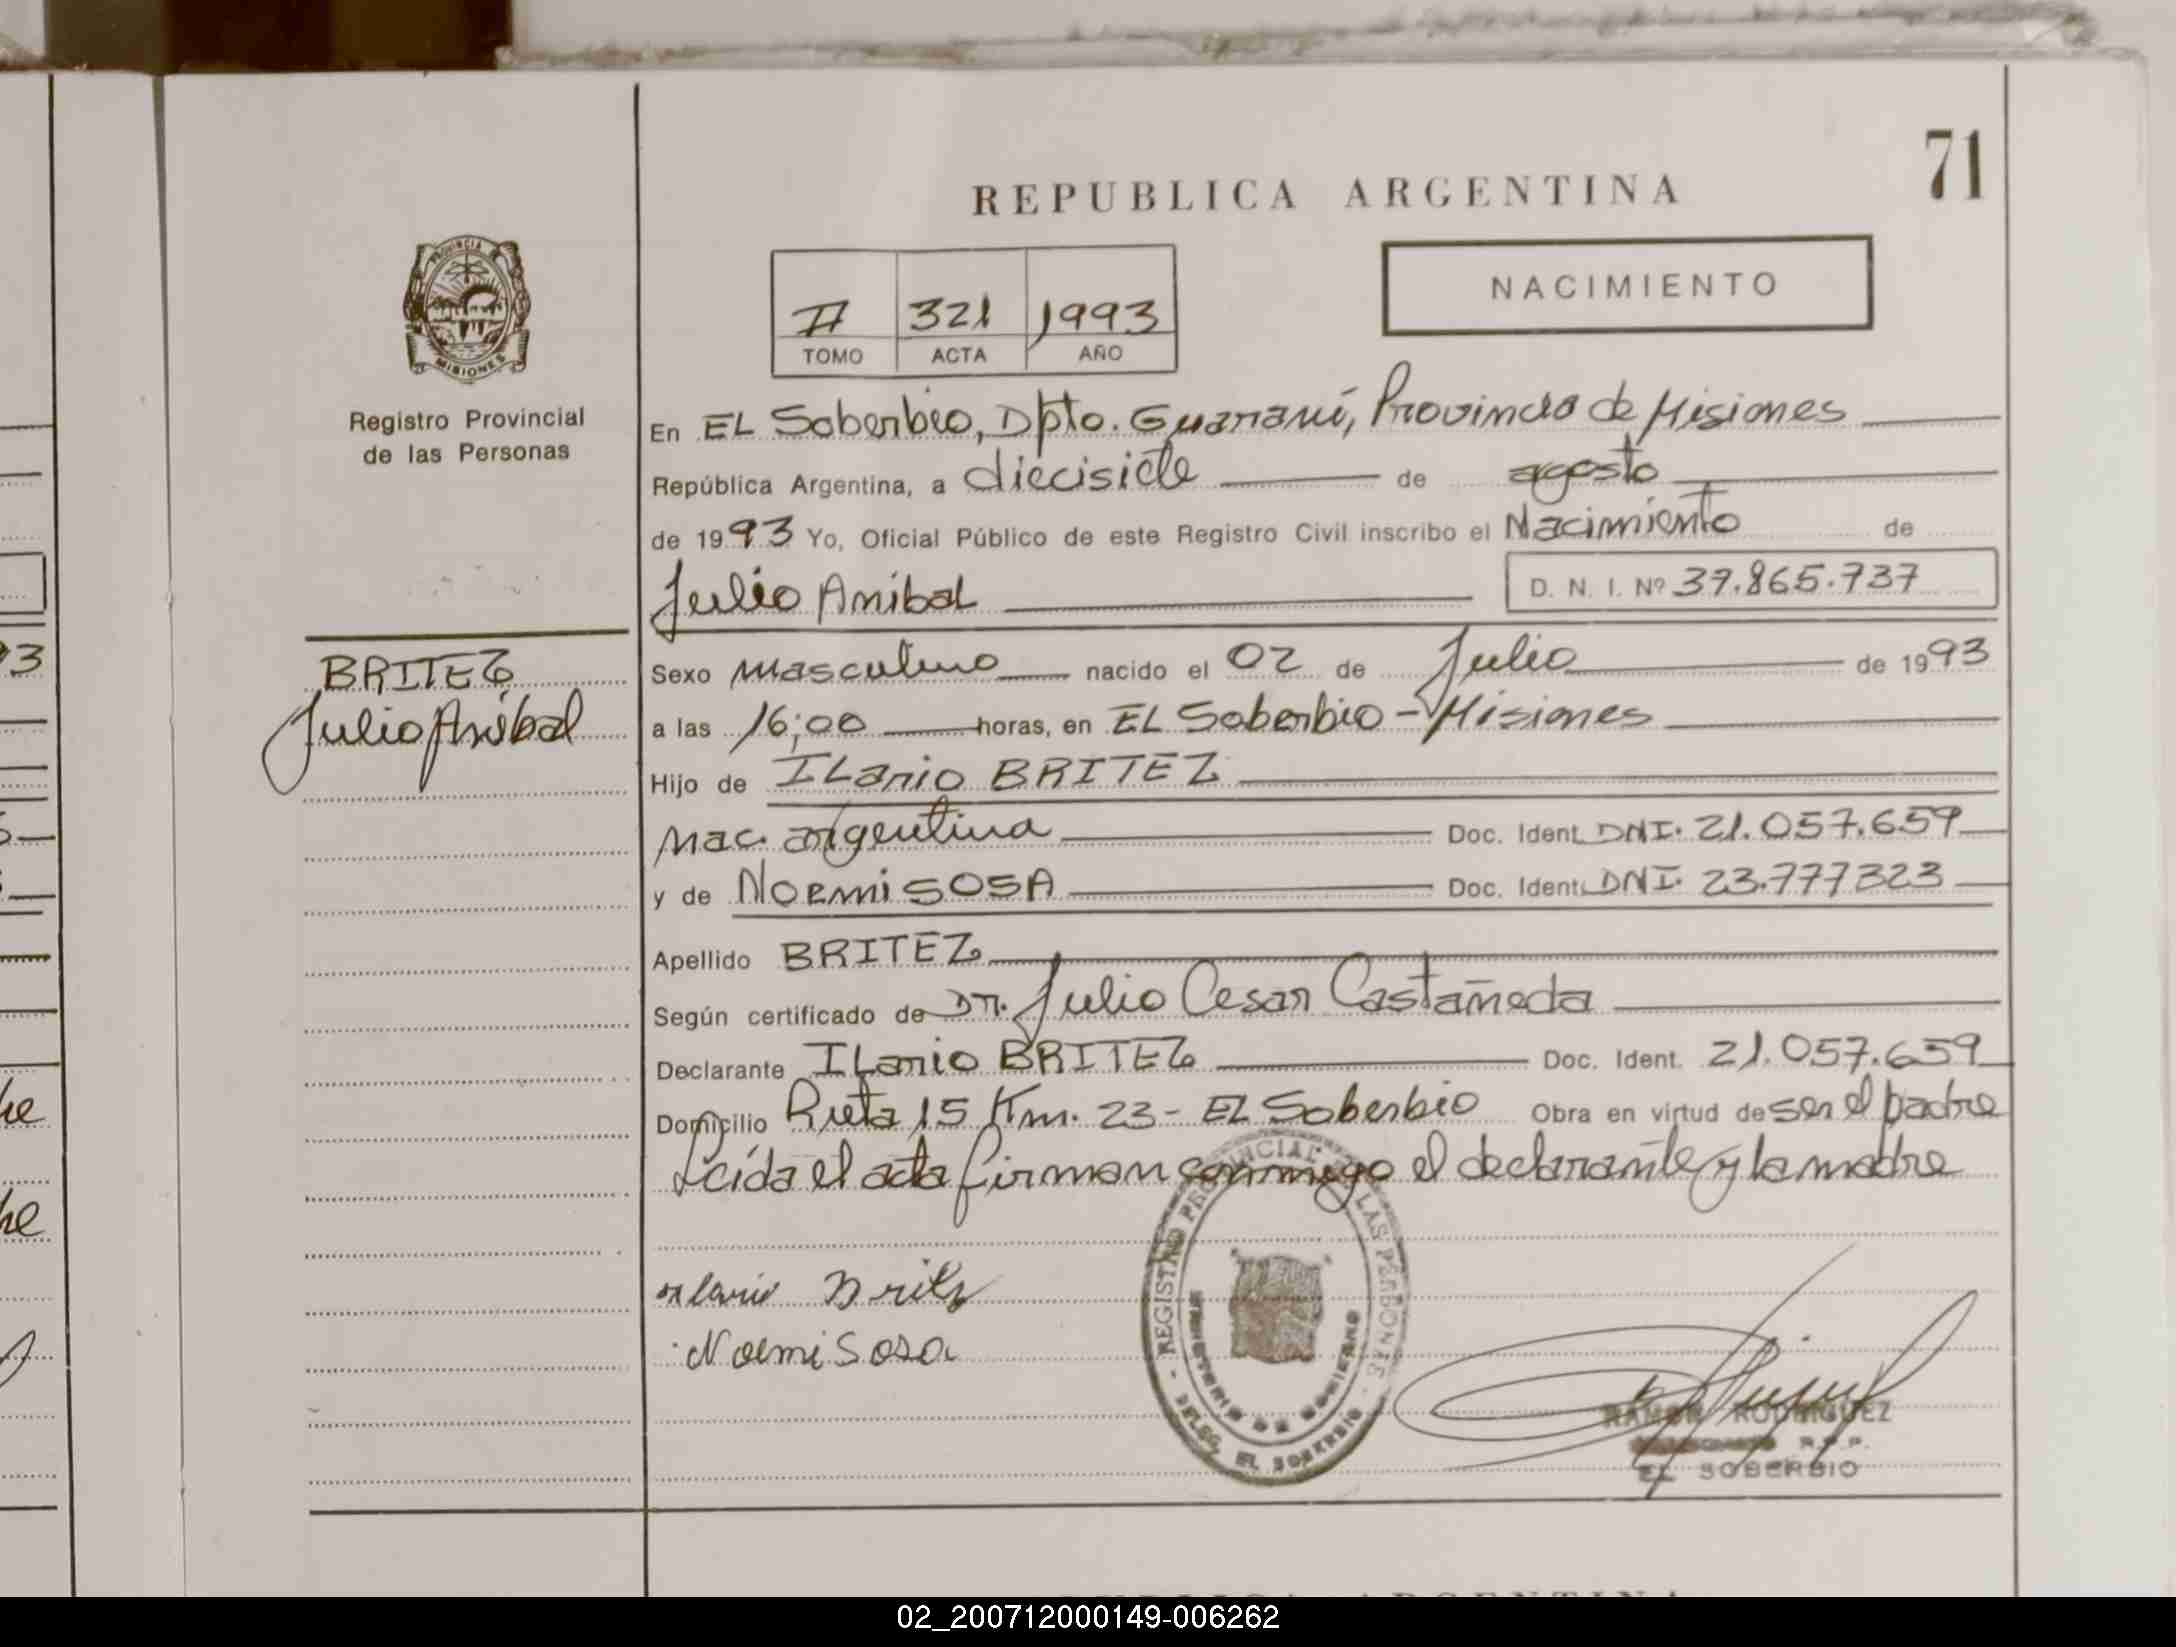 71
REPUBLICA ARGENTINA
PROVINCIA
MISIONES
Registro Provincial
de las Personas
NACIMIENTO
II 321 1993
TOMO ACTA AÑO
En EL Soberbio, Dpto. Guaraní, Provincia de Misiones
República Argentina, a diecisiete de agosto
de 1993 Yo, Oficial Público de este Registro Civil inscribo el Nacimiento de
Julio Anibal D. N. I. Nº 37.865.737
BRITEZ
Julio Anibal
Sexo masculino nacido el 02 de Julio de 1993
a las 16;00 horas, en EL Soberbio - Misiones
Hijo de ILario BRITEZ
Nac. argentina Doc. Ident. DNI. 21.057.659
y de Noemi SOSA Doc. Ident. DNI. 23.777323
Apellido BRITEZ
Según certificado de Dr. Julio Cesar Castañeda
Declarante ILario BRITEZ Doc. Ident. 21.057.659
Domicilio Ruta 15 Km. 23 - EL Soberbio Obra en virtud de ser el padre
Leída el acta firman conmigo el declarante y la madre
Noemi Sosa
REGISTRO PROVINCIAL DE LAS PERSONAS
MINISTERIO DE GOBIERNO
- DELEG. EL SOBERBIO -
RAMON RODRIGUEZ
R.P.P.
EL SOBERBIO
02_200712000149-006262